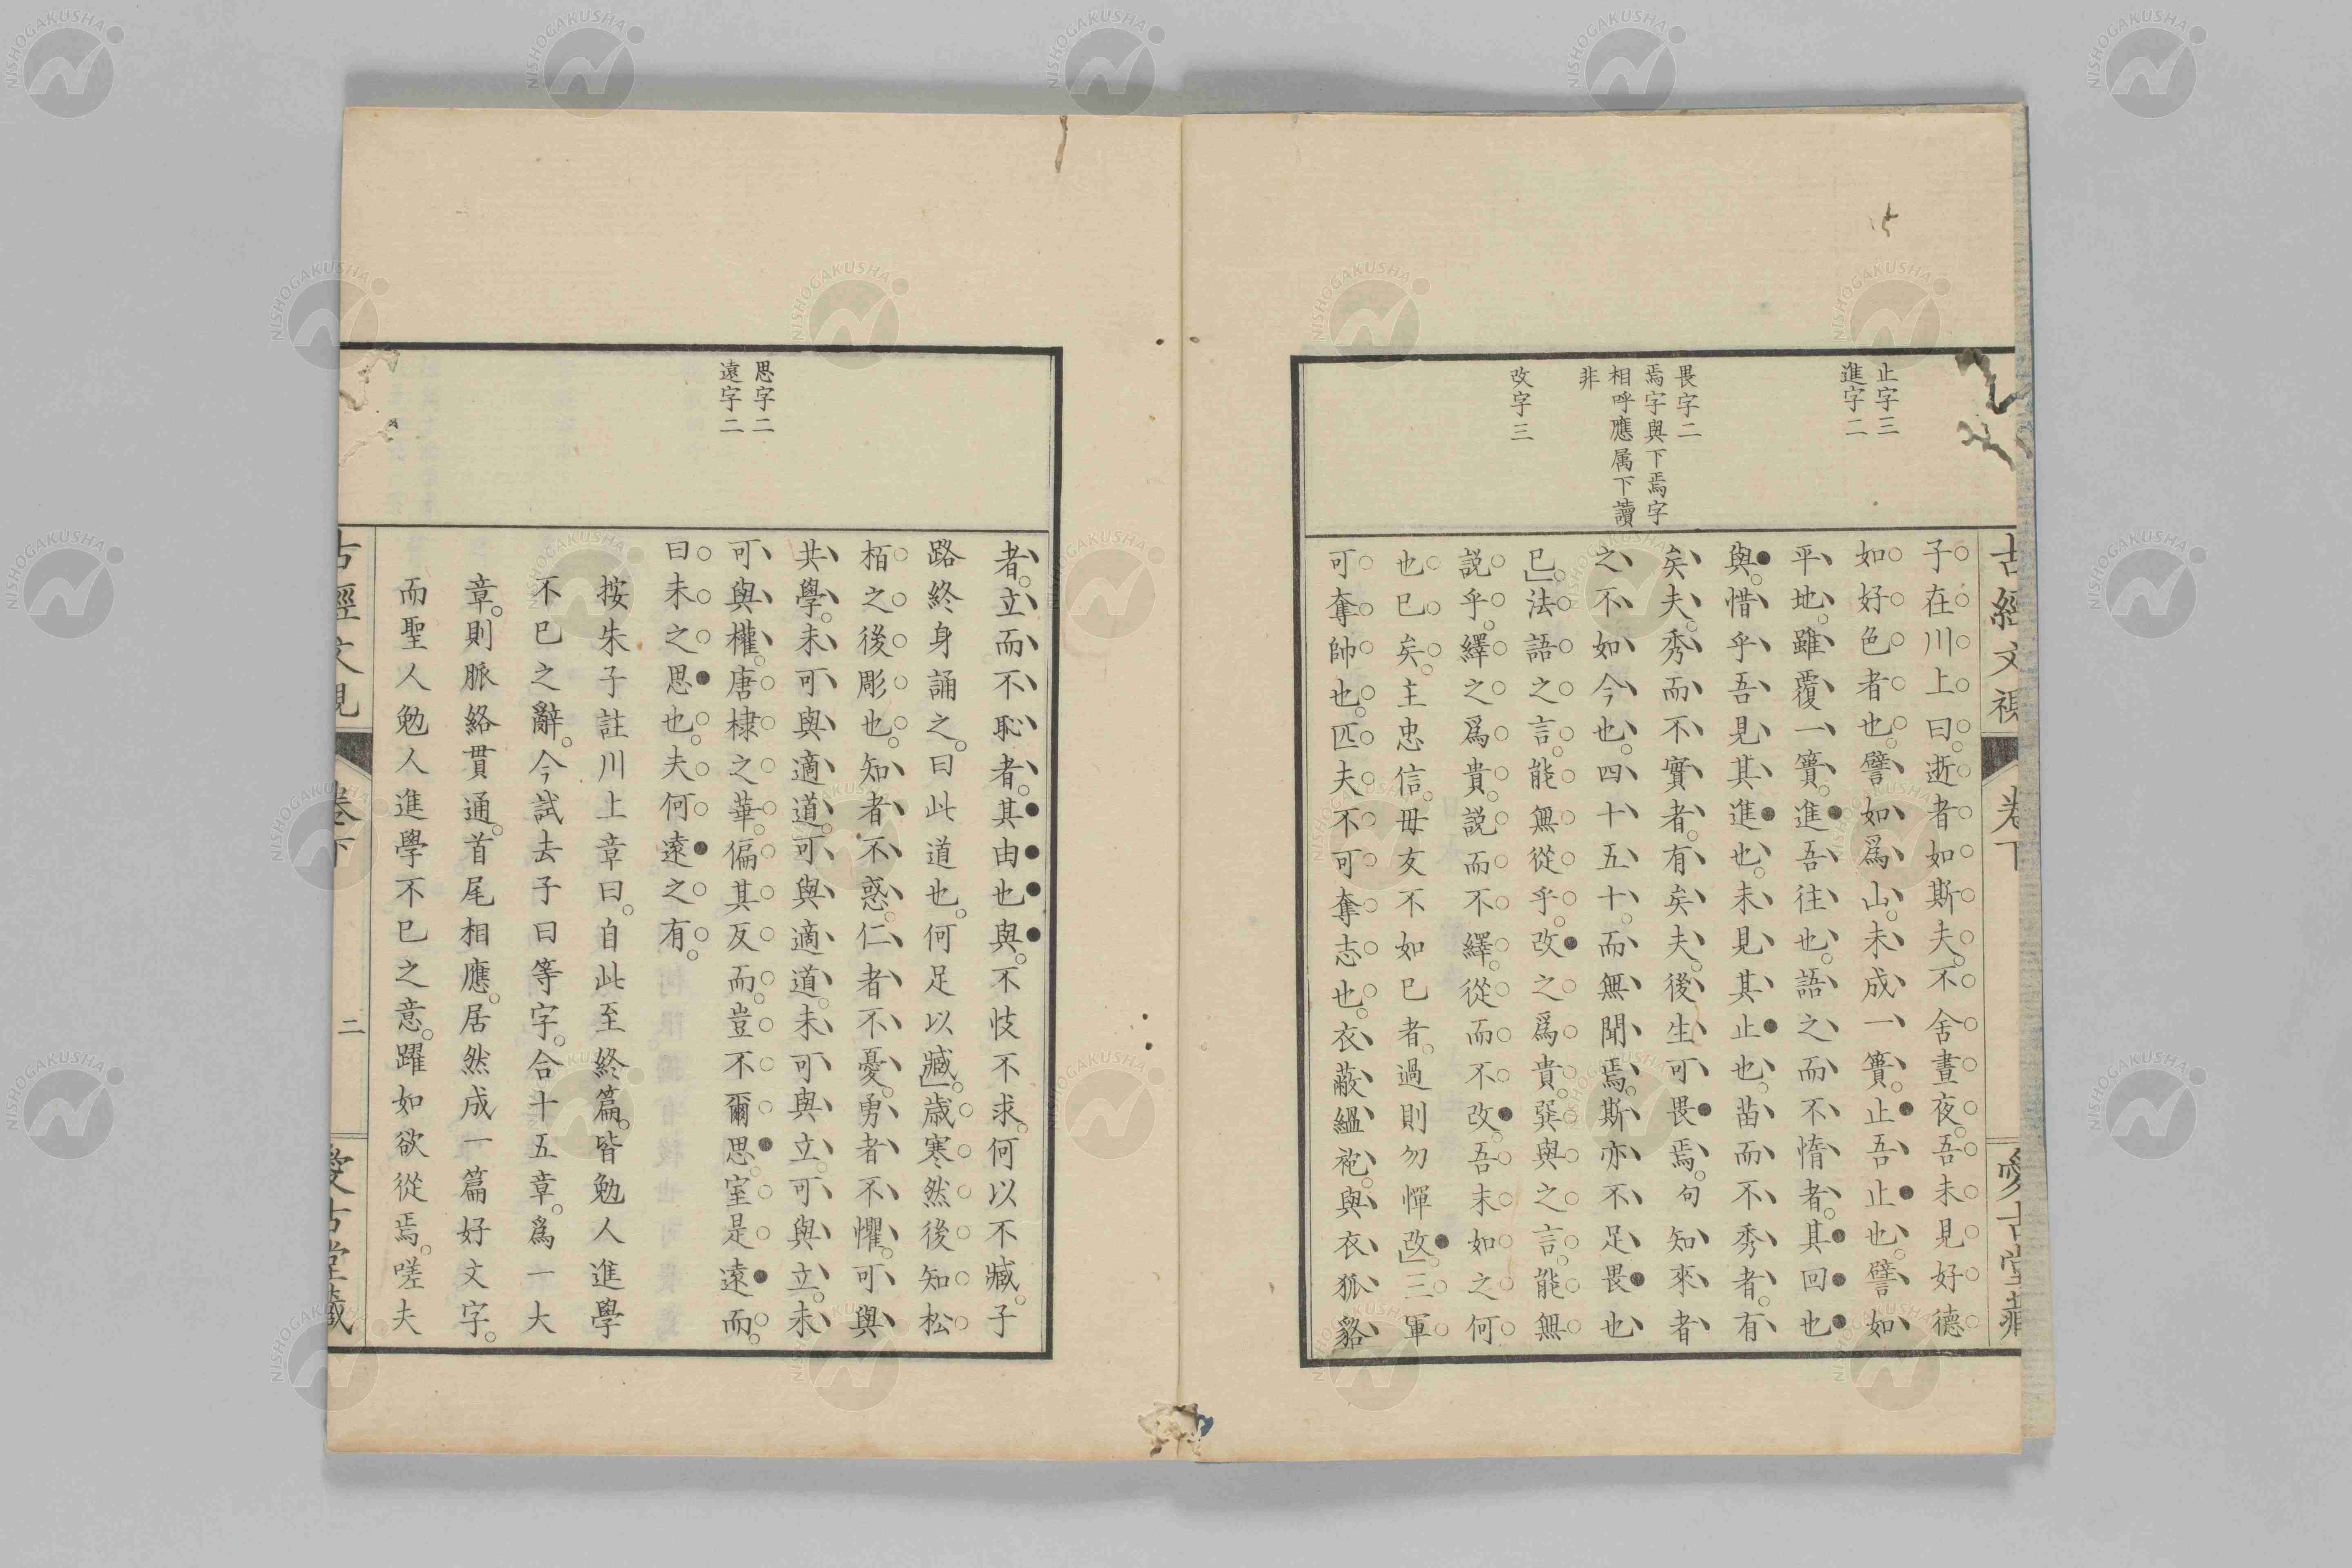 止字三
進字二
畏字二
焉字與下焉字
相呼應属下讀
非
改字三
子在川上曰。逝者如斯夫。不舍晝夜。吾未見好德
如好色者也。譬如爲山。未成一簣。止吾止也。譬如
平地。雖覆一簣。進吾往也。語之而不惰者。其回也
與。惜乎吾見其進也。未見其止也。苗而不秀者。有
矣夫。秀而不實者。有矣夫。後生可畏焉。句知來者
之不如今也。四十五十。而無聞焉。斯亦不足畏也
已」法語之言。能無從乎。改之爲貴。巽與之言。能無
説乎。繹之爲貴。説而不繹。從而不改。吾末如之何
也已矣。主忠信。毋友不如已者。過則勿憚改」。三軍
可奪帥也。匹夫不可奪志也。衣蔽縕袍。與衣狐貉
思字二
遠字二
者。立而不恥者。其由也與。不忮不求。何以不臧。子
路終身誦之。曰此道也。何足以臧」。歳寒然後知松
栢之後彫也。知者不惑。仁者不憂。勇者不懼。可與
共學。未可與適道。可與適道。未可與立。可與立。未
可與權。唐棣之華。偏其反而。豈不爾思。室是遠而。
曰未之思也。夫何遠之有。
按朱子註川上章曰。自此至終篇。皆勉人進學
不已之辭。今試去子曰等字。合十五章。爲一大
章。則脈絡貫通。首尾相應。居然成一篇好文字。
而聖人勉人進學不已之意。躍如欲從焉。嗟夫
古經文視
卷下
二
愛古堂藏